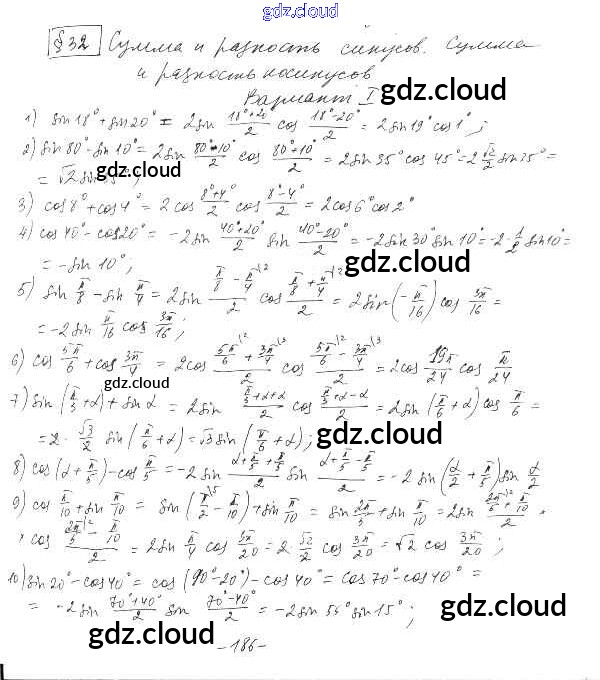 gdz.cloud
§32 Сумма и разность синусов. Сумма
и разность косинусов
Вариант I
gdz.cloud
1) sin18°+sin20° = 2sin (18°+20°)/2 cos (18°-20°)/2 = 2sin19°cos1°;
2) sin80°-sin10° = 2sin (80°-10°)/2 cos (80°+10°)/2 = 2sin35°cos45° = 2 √2/2 sin35° =
= √2 sin35°;
gdz.cloud
3) cos8°+cos4° = 2cos (8°+4°)/2 cos (8°-4°)/2 = 2cos6°cos2°
4) cos40°-cos20° = -2sin (40°+20°)/2 sin (40°-20°)/2 = -2sin30°sin10° = -2·1/2 sin10° =
= -sin10°;
gdz.cloud
5) sin π/8 - sin π/4 = 2sin (π/8 - π/4)/2 cos (π/8 + π/4)/2 = 2sin(-π/16) cos 3π/16 =
= -2sin π/16 cos 3π/16;
gdz.cloud
6) cos 5π/6 + cos 3π/4 = 2cos (5π/6 + 3π/4)/2 cos (5π/6 - 3π/4)/2 = 2cos 19π/24 cos π/24
gdz.cloud
7) sin(π/3+α)+sinα = 2sin (π/3+α+α)/2 cos (π/3+α-α)/2 = 2sin(π/6+α) cos π/6 =
= 2·√3/2 sin(π/6+α) = √3 sin(π/6+α);
gdz.cloud
8) cos(α+π/5)-cos π/5 = -2sin (α+π/5+π/5)/2 sin (α+π/5-π/5)/2 = -2sin(α/2+π/5) sin α/2
9) cos π/10 + sin π/10 = sin(π/2 - π/10) + sin π/10 = sin 2π/5 + sin π/10 = 2sin (2π/5 + π/10)/2 ×
× cos (2π/5 - π/10)/2 = 2sin π/4 cos 3π/20 = 2 √2/2 cos 3π/20 = √2 cos 3π/20;
gdz.cloud
10) sin20°-cos40° = cos(90°-20°)-cos40° = cos70°-cos40° =
= -2sin (70°+40°)/2 sin (70°-40°)/2 = -2sin55°sin15°;
gdz.cloud
-186-
gdz.cloud